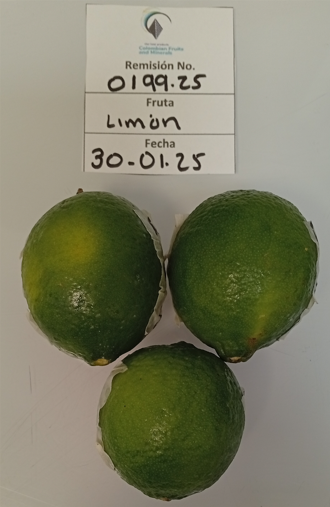 Colombian Fruits
and Minerals
Remisión No.
0199.25
Fruta
Limón
Fecha
30-01-25